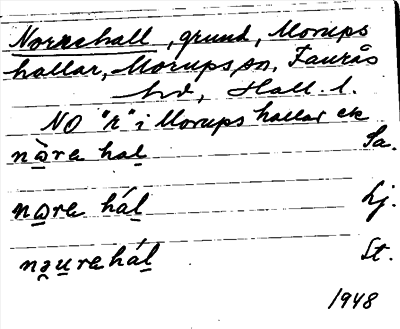 Norrehall, grund, Morups
hallar, Morups sn, Faurås
hd, Hall. l.
NO "r" i Morups hallar ek
nàre hal Sa.
nare hál Lj.
naurehál St.
1948